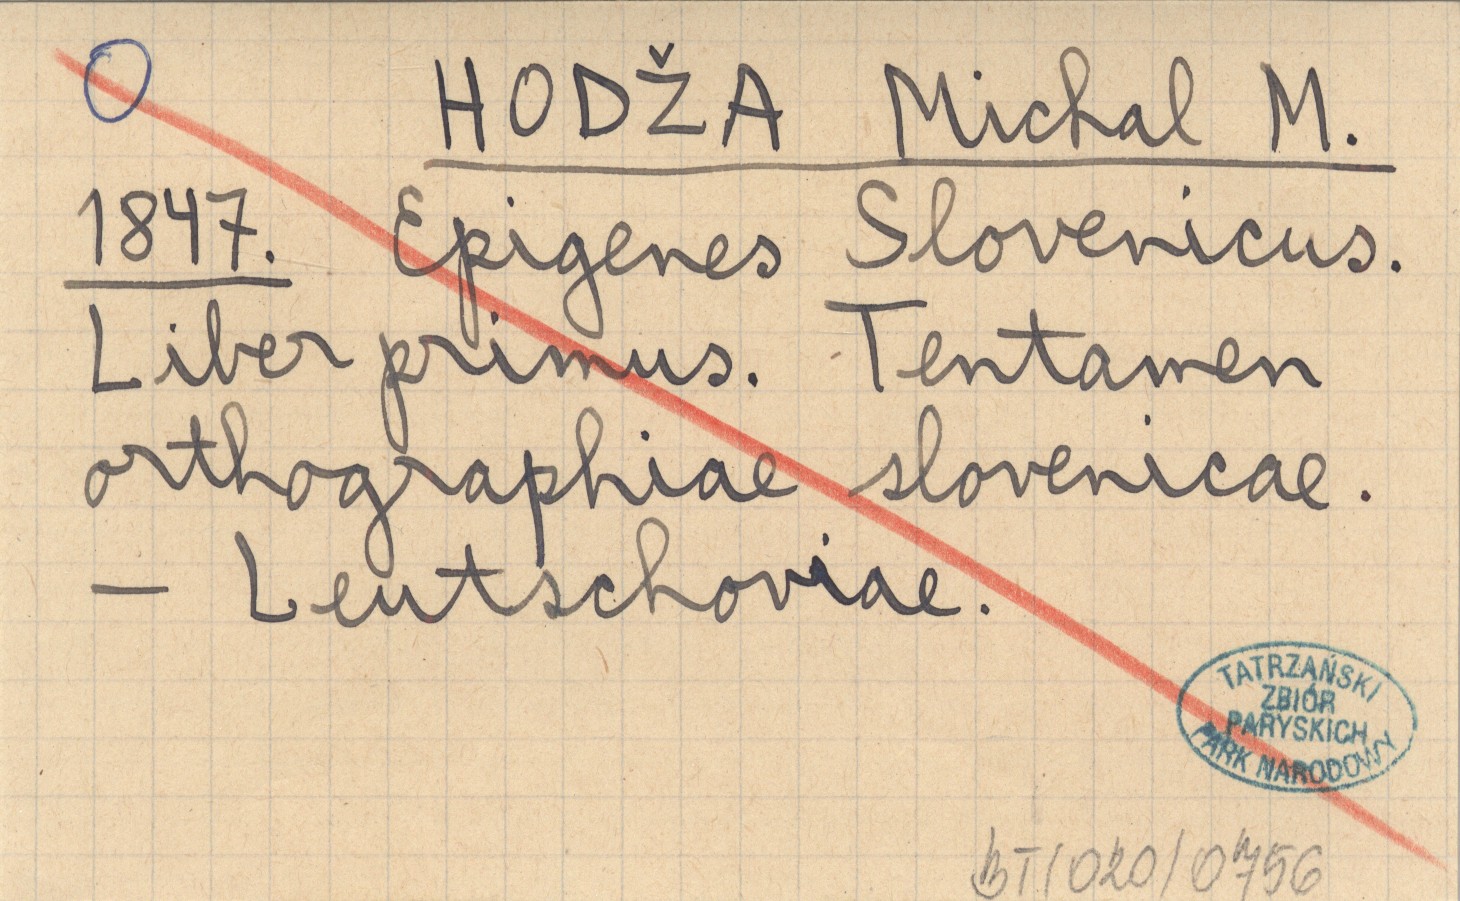 HODŽA Michal M.
1847. Epigenes Slovenicus.
Liber primus. Tentamen
orthographiae slovenicae.
— Leutschoviae.
TATRZAŃSKI
ZBIÓR
PARYSKICH
PARK NARODOWY
BT/020/0756